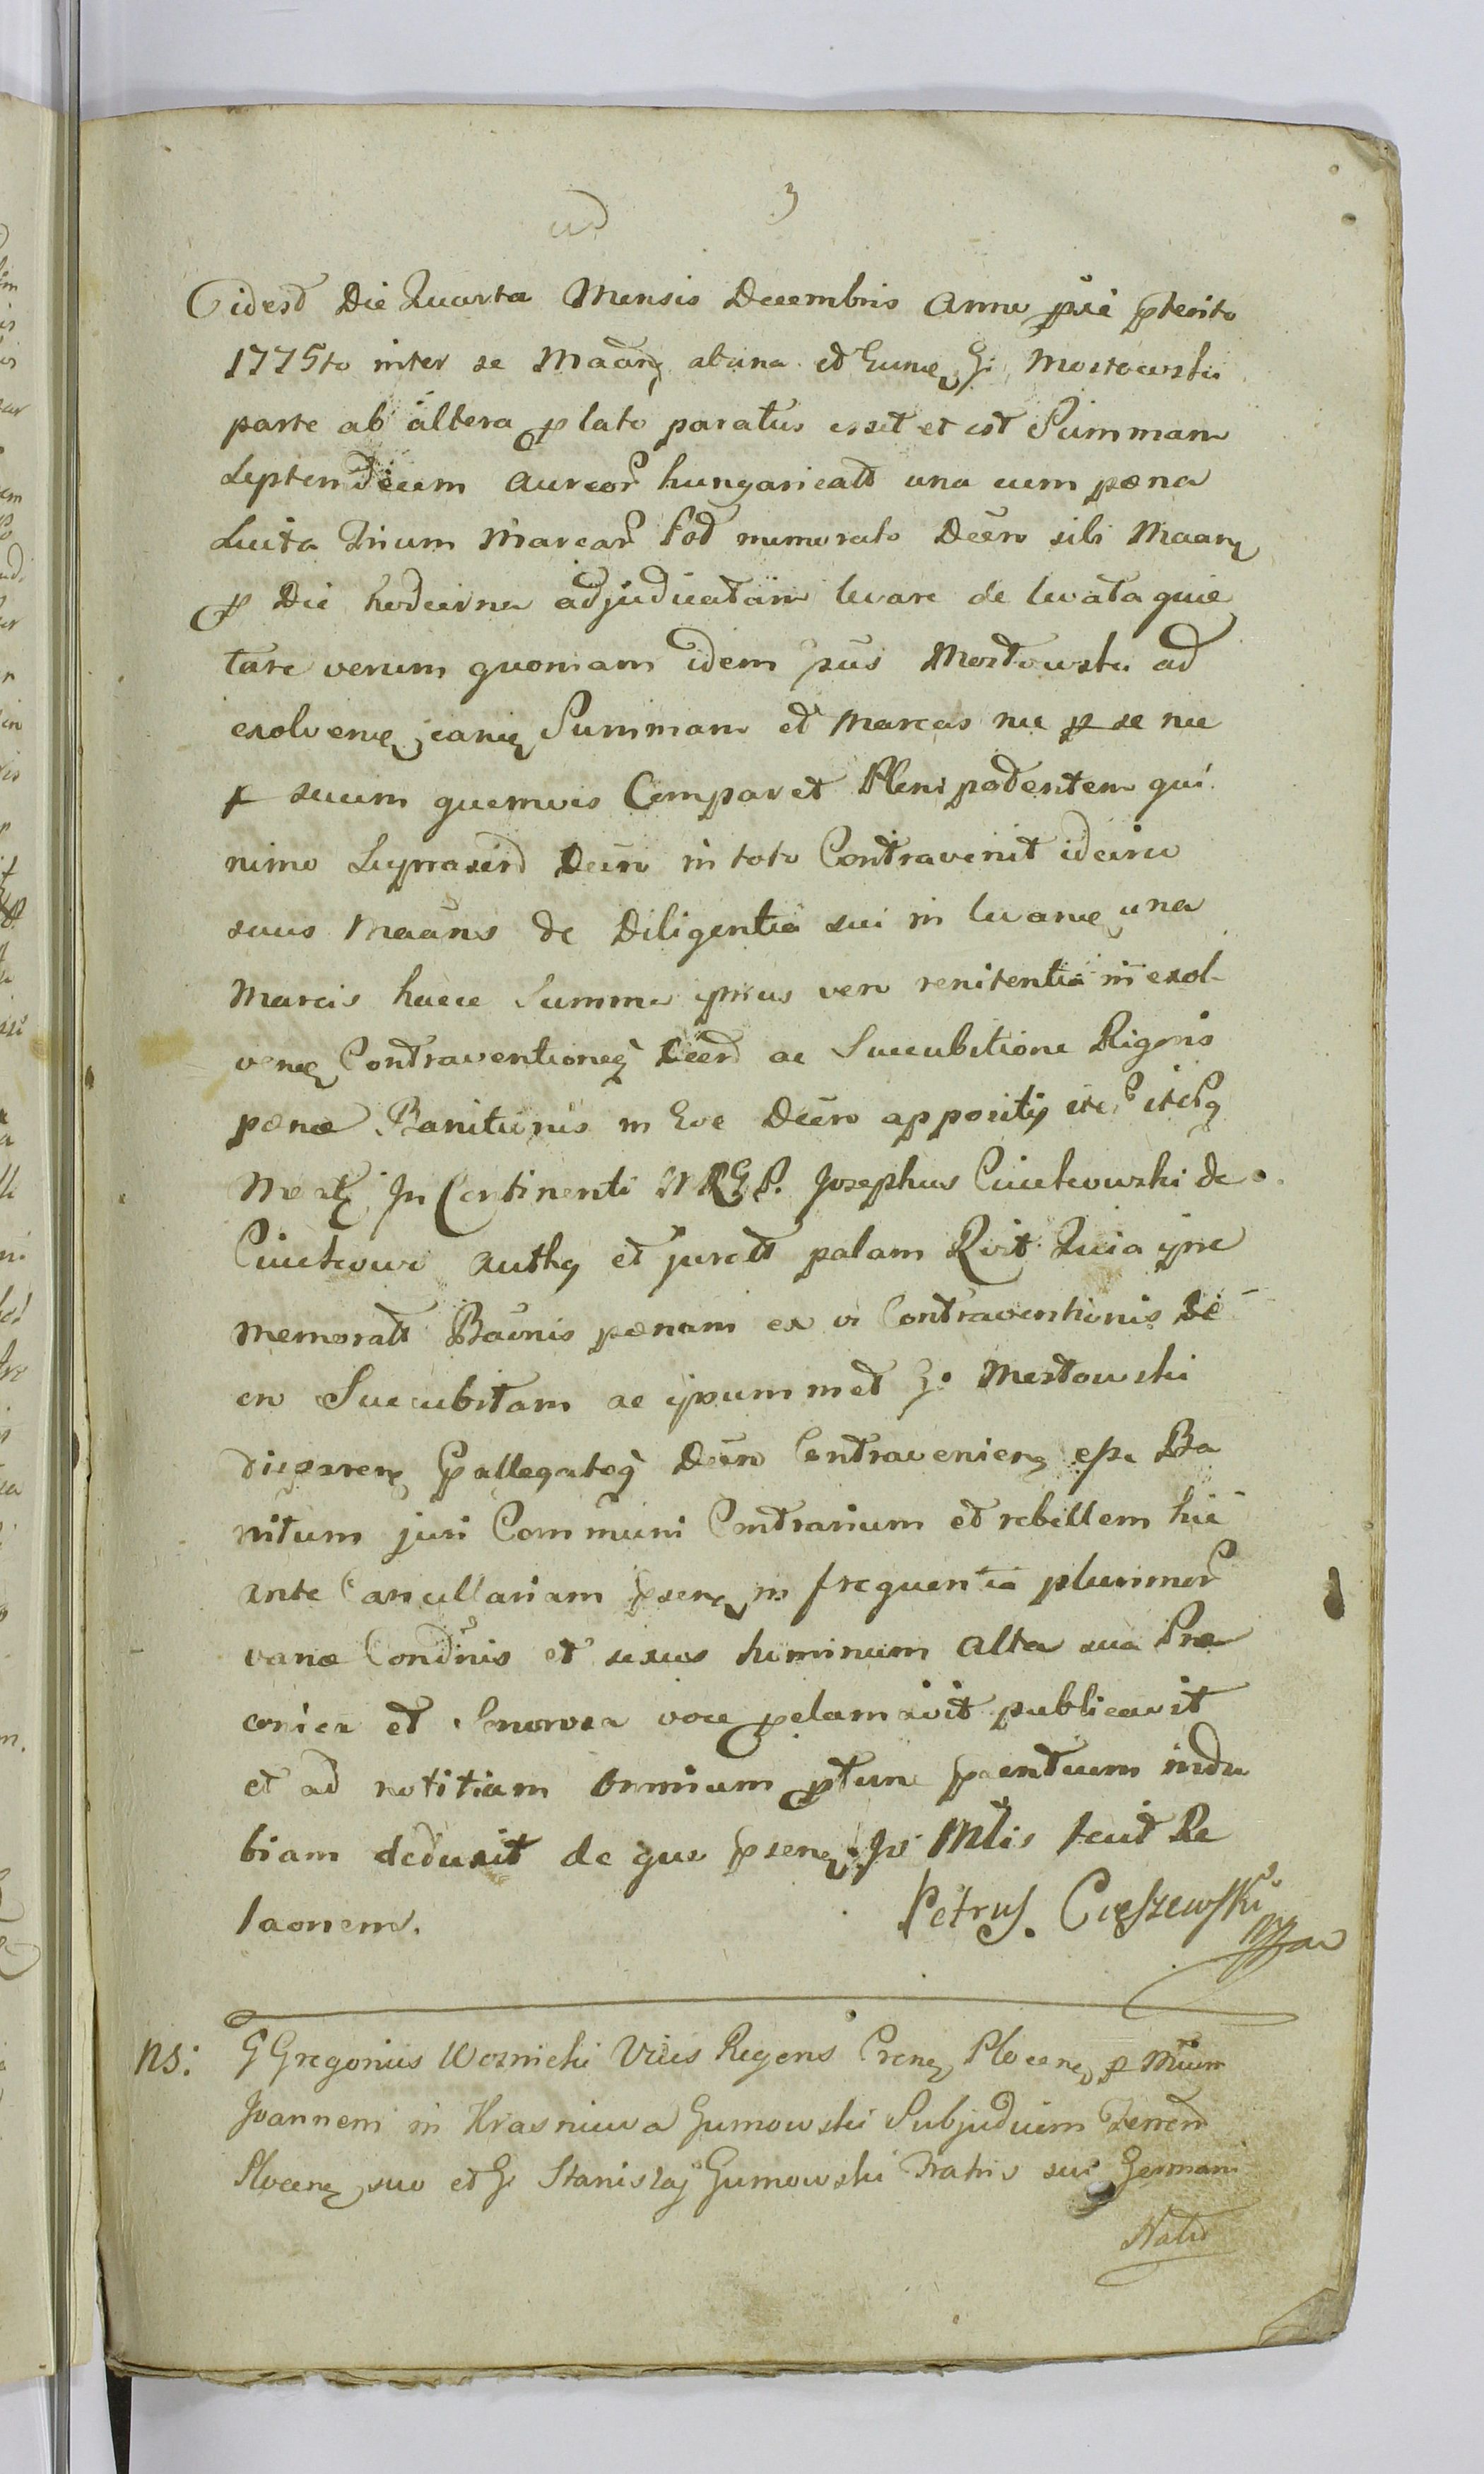 3
Die Quarta Mensis Decembris Anno pñe pterito
1775to inter se Maãn ab una et Eund G. Mostowski
parte ab altera plato paratus esset et est Summam
Septemdecim Aureor hungaricalt una cum pæna
Luita Trium Marcar Pod numerato Deero sibi Maan
p Die hodierna adjudicatam levare de levata quie
tare verum quoniam idem sus Mostowski ad
exolvend eand Summam et Marcas nec p se nec
p suum quemvis Comparet Plenipotentem qui
nimo Suprascrd Decro in toto Contravenit idcirco
suus Maans de Diligentia sui in levand una
Marcis hacce Summa ipsius vero renitentia in exol-
vend Contraventioneq Deero ac Succubitione Rigoris
pænæ Banitionis in Eoe Deero appositæ
In Continenti MRGP. Josephus Ciuckowski de
Ciuckowo auth et jurats palam Rvit Quia ipse
memorats Baonis pænam ex vi Contraventionis De
ero Succubitam ac ipsummet G. Mostowski
disparen pallegatoq Deero Contravenien esse Ba
nitum juri Communi Contrarium et rebellem hic
ante Cancellariam psen in frequentia plurimor
variæ Condnis et sexus hominum alta sua Præ
conica et Sonorosa voce pclamavit publicavit
et ad notitiam omnium ptunc psentium indu
biam deduxit de quo psen Jes Mtis fecit Re
laonem.
Petrus Cieszewski
ns: G Gregorius Woznicki Vices Regens Cren Plocen p Mcum
Joannem in Krasniewa Gumowski Subjudicem Terrem
Plocen suo et G Stanislaj Gumowski Fratris sui Germani
Natu